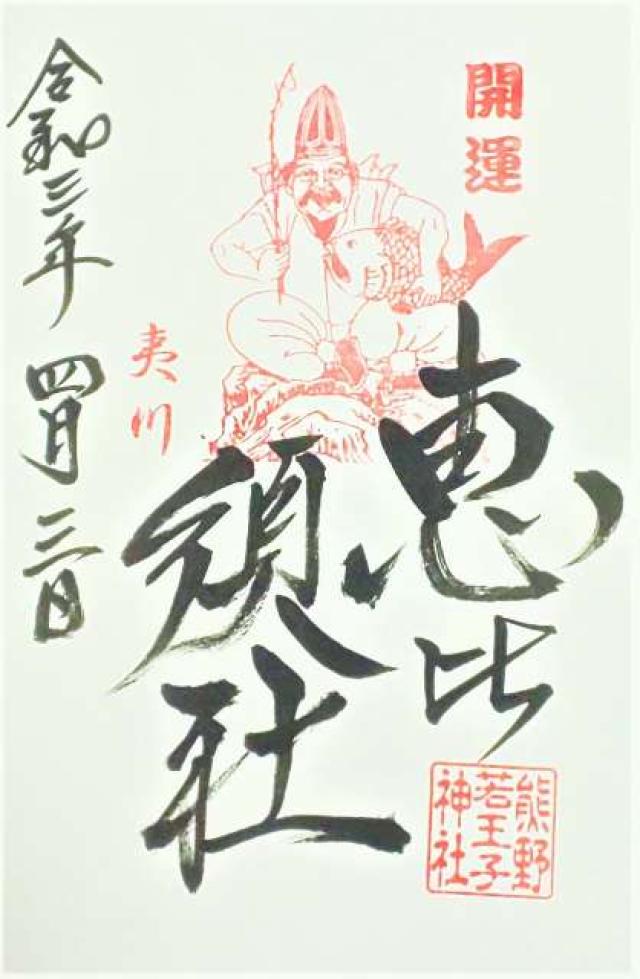 開運
恵比
須社
夷川
令和三年四月三日
熊野
若王子
神社